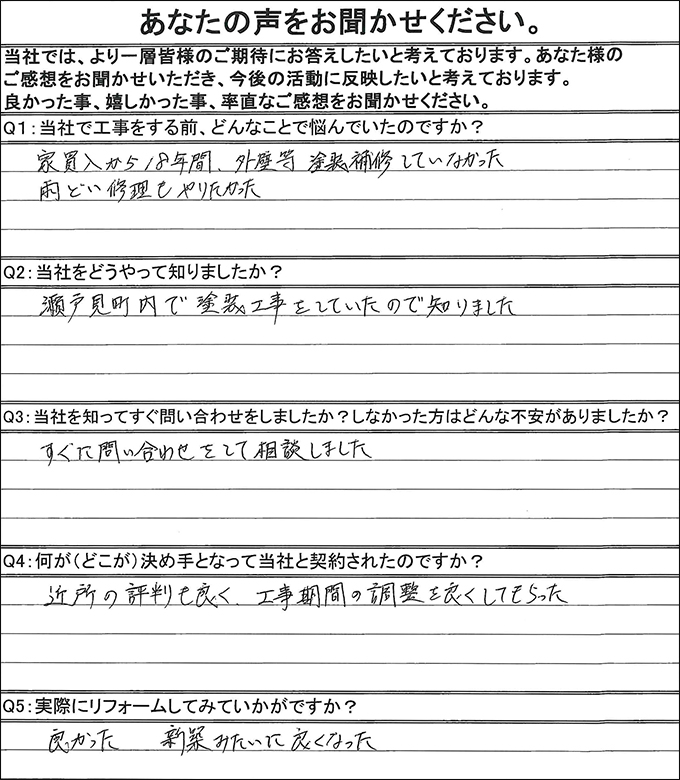 あなたの声をお聞かせください。
当社では、より一層皆様のご期待にお答えしたいと考えております。あなた様の
ご感想をお聞かせいただき、今後の活動に反映したいと考えております。
良かった事、嬉しかった事、率直なご感想をお聞かせください。
Q1：当社で工事をする前、どんなことで悩んでいたのですか？
家買入から18年間、外壁等 塗装補修していなかった
雨どい修理もやりたかった
Q2：当社をどうやって知りましたか？
瀬戸見町内で塗装工事をしていたので知りました
Q3：当社を知ってすぐ問い合わせをしましたか？しなかった方はどんな不安がありましたか？
すぐに問い合わせをして相談しました
Q4：何が（どこが）決め手となって当社と契約されたのですか？
近所の評判も良く、工事期間の調整を良くしてもらった
Q5：実際にリフォームしてみていかがですか？
良かった 新築みたいに良くなった